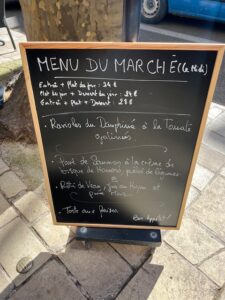 MENU DU MARCHÉ (le Midi)
Entrée + Plat du jour : 24 €
Plat du jour + Dessert du jour : 24 €
Entrée + Plat + Dessert : 28 €
• Ravioles du Dauphiné à la Tomate
• Pavé de Saumon à la crème de
bisque de Homard, purée de Légumes
ou
Rôti de Veau, jus au thym et
purée
• Tarte aux fraises
Bon Appétit !